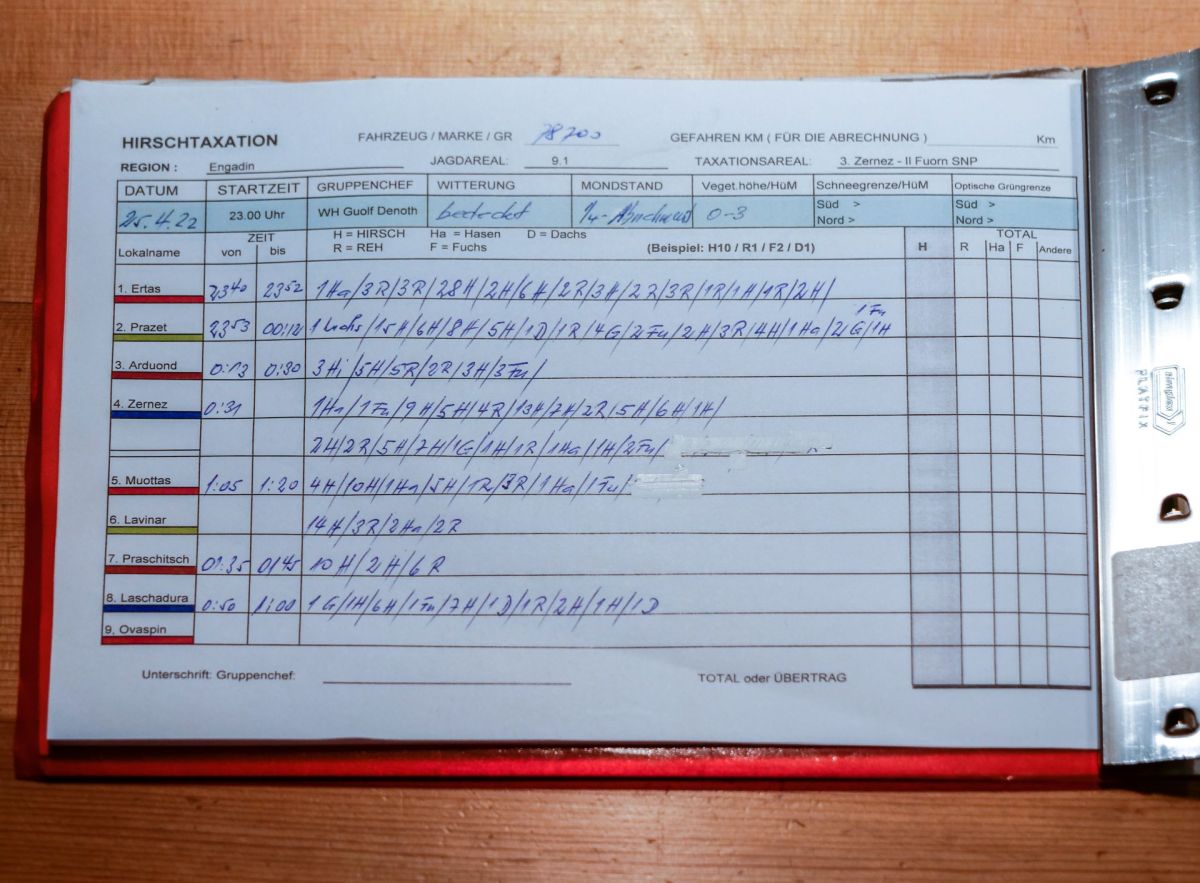 HIRSCHTAXATION FAHRZEUG / MARKE / GR 78700 GEFAHREN KM ( FÜR DIE ABRECHNUNG ) Km
REGION : Engadin JAGDAREAL: 9.1 TAXATIONSAREAL: 3. Zernez - Il Fuorn SNP
DATUM STARTZEIT GRUPPENCHEF WITTERUNG MONDSTAND Veget.höhe/HüM Schneegrenze/HüM Optische Grüngrenze
25.4.22 23.00 Uhr WH Guolf Denoth bedeckt 1/4 - Abnehmend 0-3 Süd > Süd >
Nord > Nord >
ZEIT H = HIRSCH Ha = Hasen D = Dachs TOTAL
Lokalname von bis R = REH F = Fuchs (Beispiel: H10 / R1 / F2 / D1) H R Ha F Andere
1. Ertas 2340 2352 1Ha/3R/3R/28H/2H/6H/2R/3H/2R/3R/1R/1H/1R/2H/
1Fu
2. Prazet 2353 00:12 1 Luchs/15H/6H/8H/5H/1D/1R/4G/2Fu/2H/3R/4H/1Ha/2G/1H
3. Arduond 0:13 0:30 3Hi/5H/5R/2R/3H/3Fu/
4. Zernez 0:31 1Ha/1Fu/9H/5H/4R/13H/7H/2R/5H/6H/1H/
2H/2R/5H/7H/1G/1H/1R/1Ha/1H/2Fu/
5. Muottas 1:05 1:20 4H/10H/1Ha/5H/1R/3R/1Ha/1Fu/
6. Lavinar 14H/3R/2Ha/2R
7. Praschitsch 01:35 0145 10H/2H/6R
8. Laschadura 0:50 1:00 1G/1H/6H/1Fu/7H/1D/1R/2H/1H/1D
9, Ovaspin
Unterschrift: Gruppenchef: TOTAL oder ÜBERTRAG